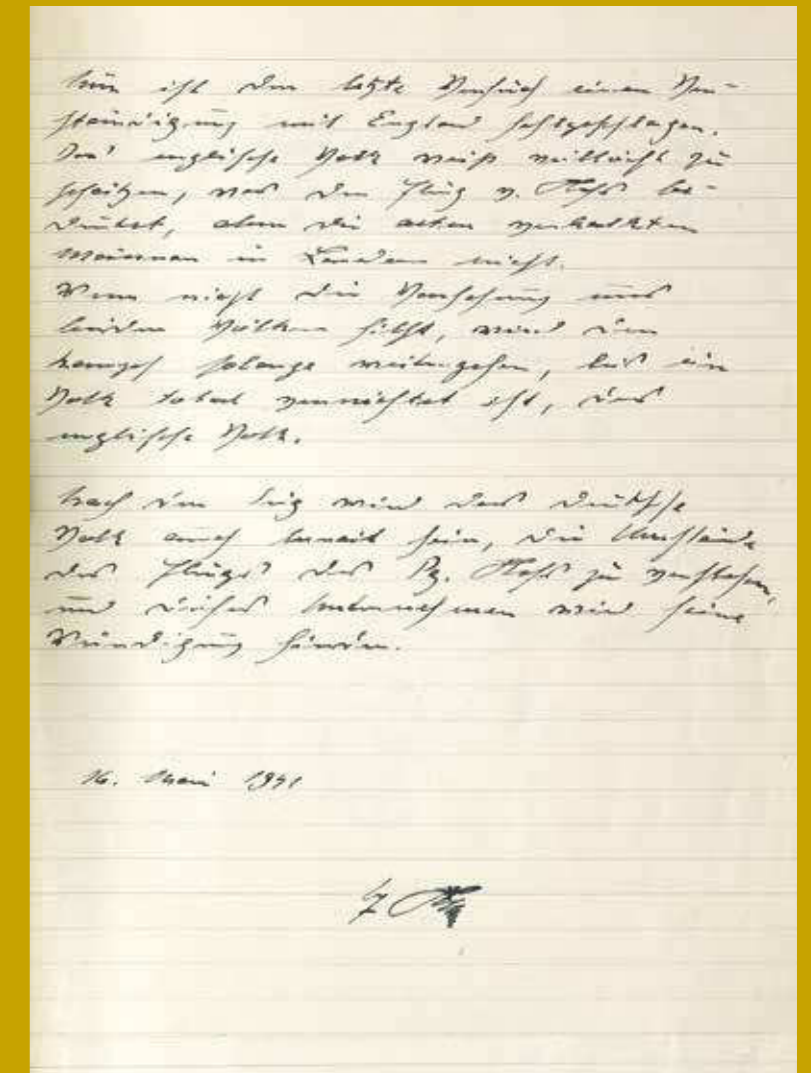 Nun ist der letzte Versuch einer Ver-
ständigung mit England fehlgeschlagen.
Das englische Volk weiß vielleicht zu
schätzen, was der Flug v. Heß be-
deutet, aber die alten verkalkten
Männer in London nicht.
Wenn nicht die Vorsehung uns
beiden Völkern hilft, wird der
Kampf solange weitergehen, bis ein
Volk total vernichtet ist, das
englische Volk.
Nach dem Sieg wird das deutsche
Volk auch bereit sein, die Umstände
des Fluges des Pg. Heß zu verstehen,
und dieses Unternehmen wird seine
Würdigung finden.
16. Mai 1941